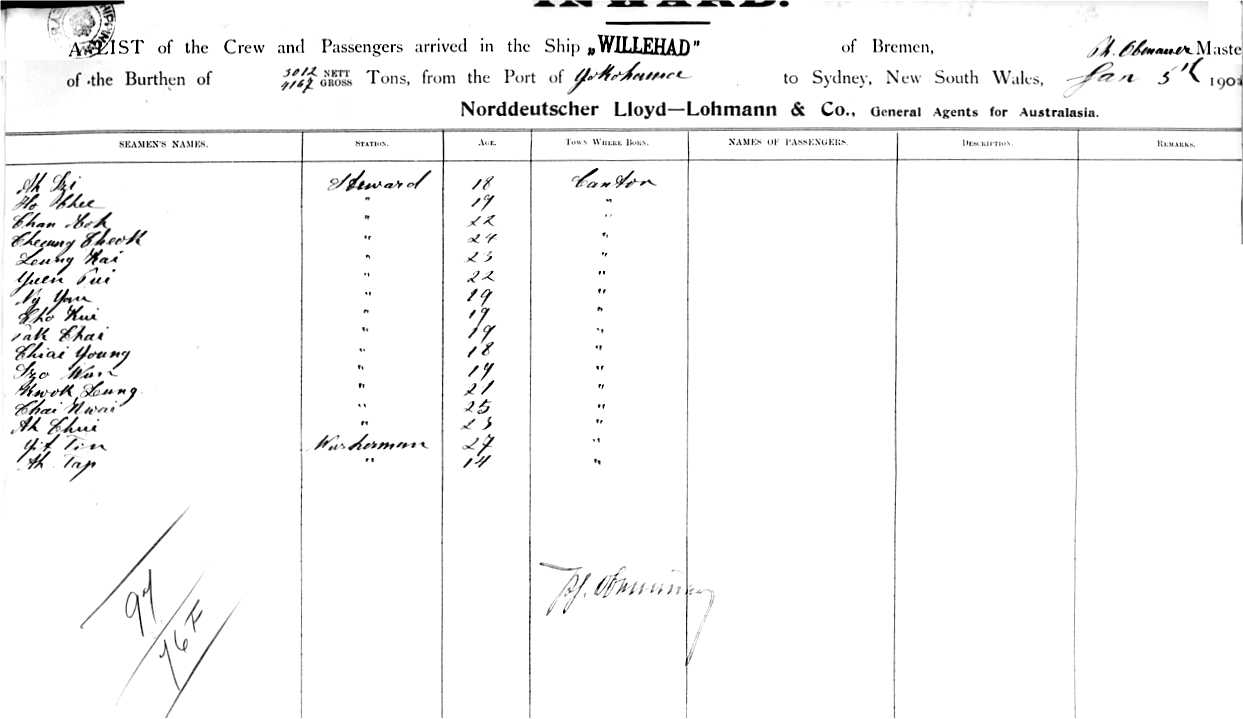 INWARD.
A LIST of the Crew and Passengers arrived in the Ship „WILLEHAD" of Bremen, Ph. Obenauer Maste
of the Burthen of 3012 NETT 4167 GROSS Tons, from the Port of Yokohama to Sydney, New South Wales, Jan 5th 190
Norddeutscher Lloyd—Lohmann & Co., General Agents for Australasia.
SEAMEN'S NAMES. STATION. AGE. TOWN WHERE BORN. NAMES OF PASSENGERS. DESCRIPTION. REMARKS.
Ah Szi Steward 18 Canton
Ho Chee " 19 "
Chan Mok " 22 "
Cheung Cheok " 24 "
Leung Kai " 23 "
Yuen Pui " 22 "
Ng Yau " 19 "
Kui " 19 "
Chai " 19 "
Chiai Young " 18 "
Szo Wan " 19 "
Kwok Leung " 21 "
Chai Kwai " 25 "
Ah Chui " 23 "
Yit Tin Washerman 27 "
Ah Tap " 14 "
Ph. Obenauer
97
76 F